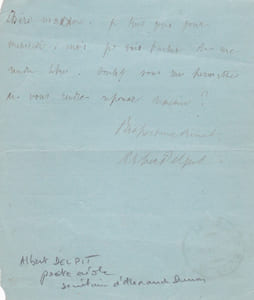 Chère madame, je suis pris pour
mercredi, mais je vais tâcher de me
rendre libre. Voulez vous me permettre
de vous rendre réponse demain ?
Respectueusement
Albert Delpit
Albert DELPIT
poète créole
secrétaire d'Alexandre Dumas